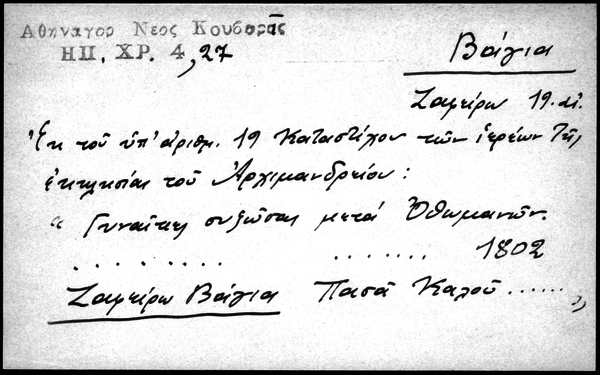 Αθηναγορ Νεος Κουβαρᾶς
ΗΠ. ΧΡ. 4, 27
Βάγια
Ζαφείρω 19. αἰ.
Ἐκ τοῦ ὑπ' ἀριθμ. 19 Καταστίχου τῶν ἱερέων τῆς
ἐκκλησίας τοῦ Ἀρχιμανδρείου:
"Γυναῖκες συζῶσαι μετά Ὀθωμανῶν.
. . . . . . . . . . . . . . . . 1802
Ζαφείρω Βάγια Πασᾶ Καλοῦ ......"